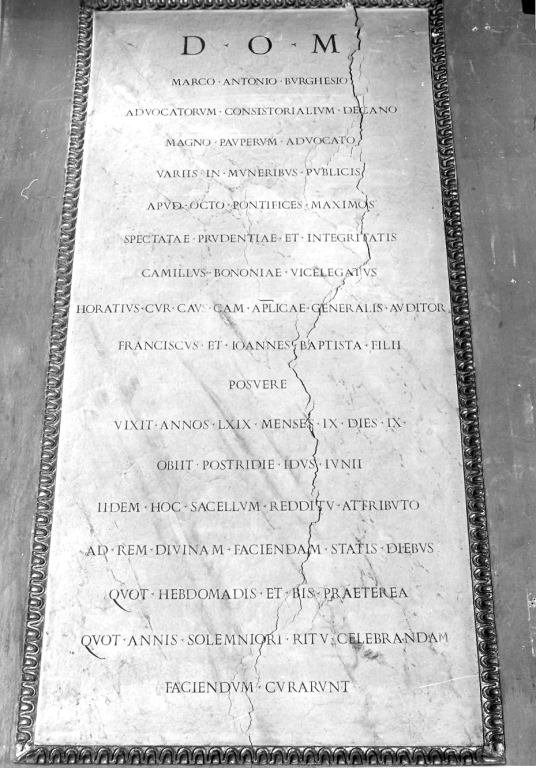 D · O · M
MARCO · ANTONIO · BVRGHESIO
ADVOCATORVM · CONSISTORIALIVM · DECANO
MAGNO · PAVPERVM · ADVOCATO
VARIIS · IN · MVNERIBVS · PVBLICIS
APVD · OCTO · PONTIFICES · MAXIMOS
SPECTATAE · PRVDENTIAE · ET · INTEGRITATIS
CAMILLVS · BONONIAE · VICELEGATVS
HORATIVS · CVR · CAVS · CAM · APLICAE · GENERALIS · AVDITOR
FRANCISCVS · ET · IOANNES · BAPTISTA · FILII
POSVERE
VIXIT · ANNOS · LXIX · MENSES · IX · DIES · IX ·
OBIIT · POSTRIDIE · IDVS · IVNII
IIDEM · HOC · SACELLVM · REDDITV · ATTRIBVTO
AD · REM · DIVINAM · FACIENDAM · STATIS · DIEBVS
QVOT · HEBDOMADIS · ET · BIS · PRAETEREA
QVOT · ANNIS · SOLEMNIORI · RITV · CELEBRANDAM
FACIENDVM · CVRARVNT